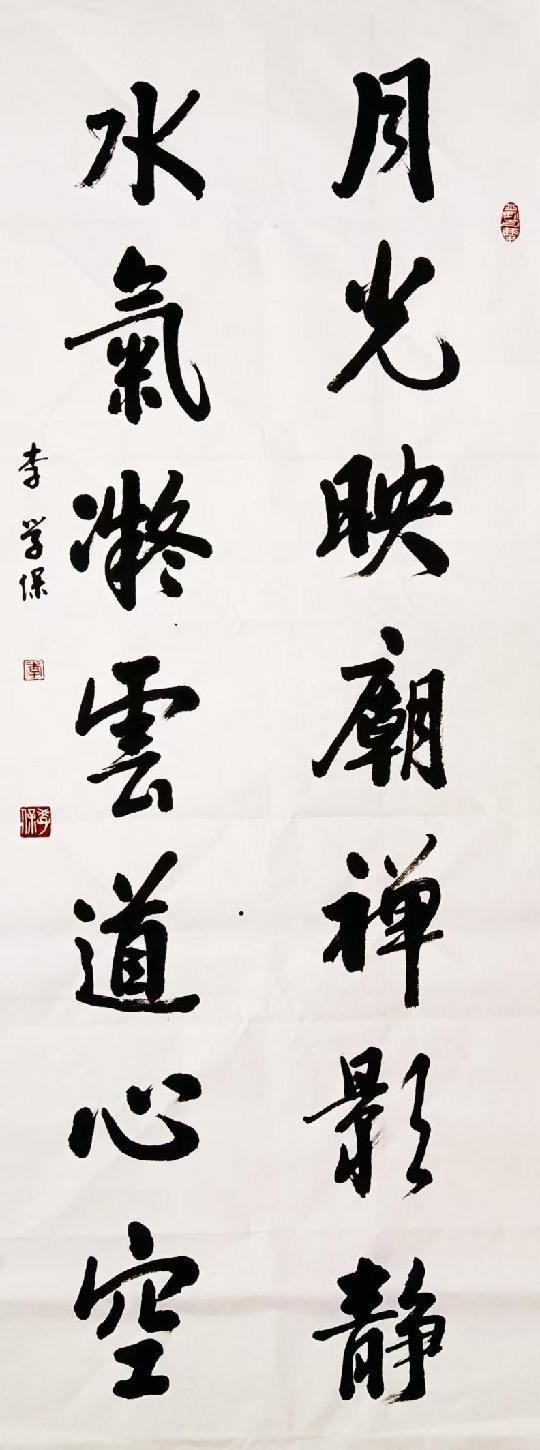 月光映廟禅影静
水氣凝雲道心空
李学保
李